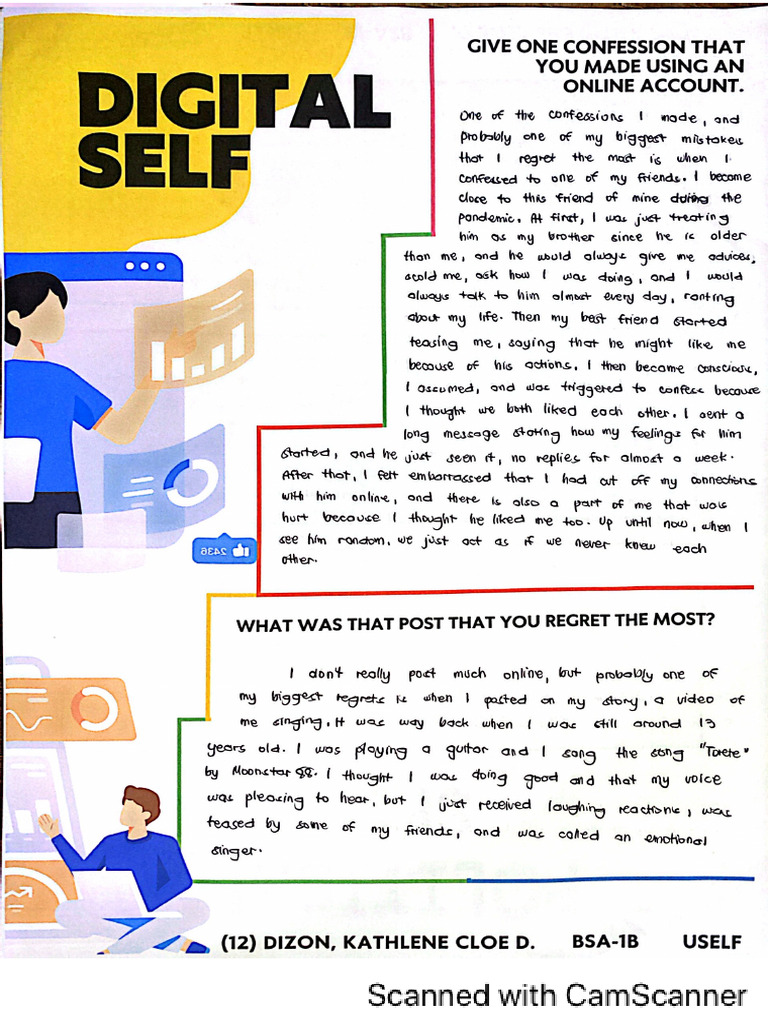 DIGITAL
SELF
GIVE ONE CONFESSION THAT
YOU MADE USING AN
ONLINE ACCOUNT.
One of the confessions I made, and
probably one of my biggest mistakes
that I regret the most is when I
confessed to one of my friends. I become
close to this friend of mine during the
pandemic. At first, I was just treating
him as my brother since he is older
than me, and he would always give me advices,
scold me, ask how I was doing, and I would
always talk to him almost every day, ranting
about my life. Then my best friend started
teasing me, saying that he might like me
because of his actions. I then became conscious,
I assumed, and was triggered to confess because
I thought we both liked each other. I sent a
long message stating how my feelings for him
started, and he just seen it, no replies for almost a week.
After that, I felt embarrassed that I had cut off my connections
with him online, and there is also a part of me that was
hurt because I thought he liked me too. Up until now, when I
see him random, we just act as if we never knew each
other.
2436
WHAT WAS THAT POST THAT YOU REGRET THE MOST?
I don't really post much online, but probably one of
my biggest regrets is when I posted on my story, a video of
me singing. It was way back when I was still around 13
years old. I was playing a guitar and I sang the song "Torete"
by Moonstar 88. I thought I was doing good and that my voice
was pleasing to hear, but I just received laughing reactions, was
teased by some of my friends, and was called an emotional
singer.
(12) DIZON, KATHLENE CLOE D. BSA-1B USELF
Scanned with CamScanner